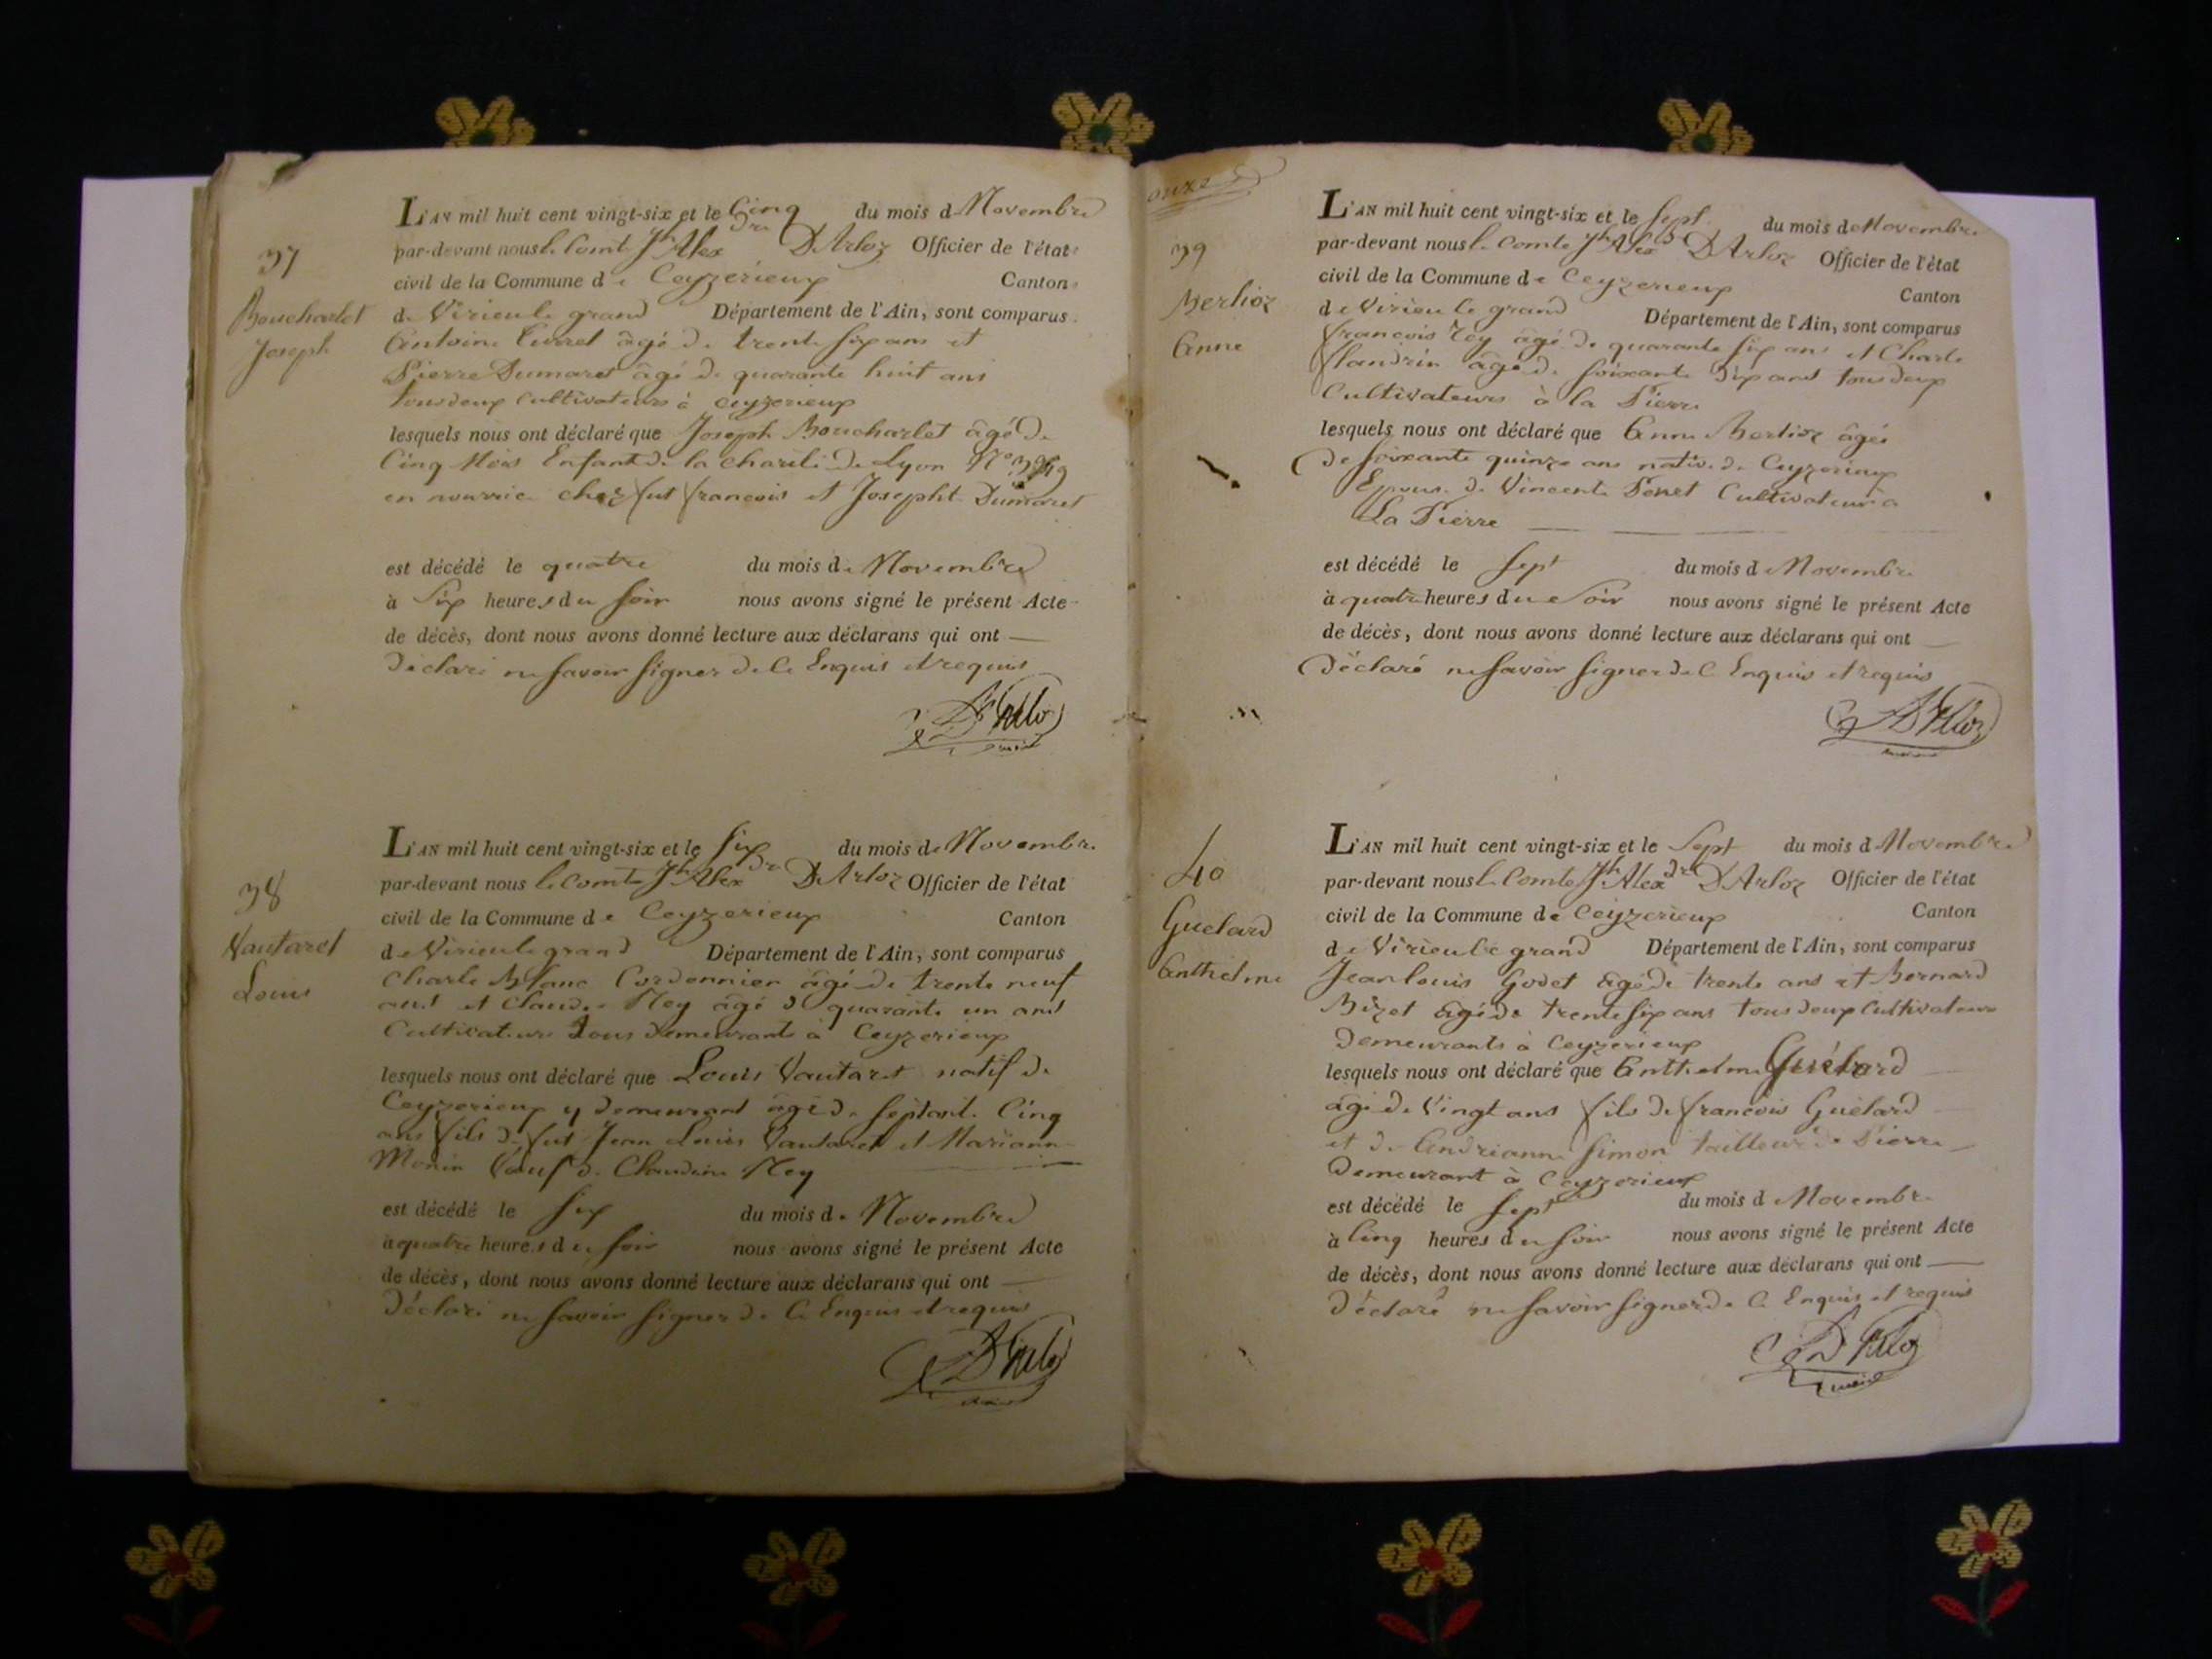 37
Boucharlet
Joseph
L'AN mil huit cent vingt-six et le Cinq du mois de Novembre
par-devant nous le Comte Jh Alexdre D'Arloz Officier de l'état
civil de la Commune de Ceyzerieux Canton
de Virieu le grand Département de l'Ain, sont comparus
Antoine âgé de trente six ans et
Pierre Dumaret âgé de quarante huit ans
tous deux Cultivateurs à Ceyzerieux
lesquels nous ont déclaré que Joseph Boucharlet âgé de
Cinq Mois Enfant de la charité de Lyon N°
en nourrice chez fut francois et Josephte Dumaret
est décédé le quatre du mois de Novembre
à Six heures du soir nous avons signé le présent Acte
de décès, dont nous avons donné lecture aux déclarans qui ont
Déclaré ne savoir signer de ce Enquis et requis
D'Arloz
38
Vautaret
Louis
L'AN mil huit cent vingt-six et le six du mois de Novembre
par-devant nous le Comte Jh Alexdre D'Arloz Officier de l'état
civil de la Commune de Ceyzerieux Canton
de Virieu le grand Département de l'Ain, sont comparus
Charle Blanc Cordonnier âgé de trente neuf
ans et Claude Rey âgé de quarante un ans
Cultivateurs tous demeurants à Ceyzerieux
lesquels nous ont déclaré que Louis Vautaret natif de
Ceyzerieux y demeurant âgé de septante Cinq
ans fils de fut Jean Louis Vautaret et Mariann
Monin Vauf de Claudine Rey
est décédé le six du mois de Novembre
à quatre heures du soir nous avons signé le présent Acte
de décès, dont nous avons donné lecture aux déclarans qui ont
Déclaré ne savoir signer de ce Enquis et requis
D'Arloz
onze
39
Berlioz
Anne
L'AN mil huit cent vingt-six et le sept du mois de Novembre
par-devant nous le Comte Jh Alexdre D'Arloz Officier de l'état
civil de la Commune de Ceyzerieux Canton
de Virieu le grand Département de l'Ain, sont comparus
francois Rey âgé de quarante six ans et Charle
flandrin âgé de soixante dix ans tous deux
Cultivateurs à la Pierre
lesquels nous ont déclaré que Anne Berlioz âgée
de soixante quinze ans native de Ceyzerieux
Epouse de Vincent Penet Cultivateur a
La Pierre
est décédé le sept du mois de Novembre
à quatre heures du Soir nous avons signé le présent Acte
de décès, dont nous avons donné lecture aux déclarans qui ont
Déclaré ne savoir signer de ce Enquis et requis
D'Arloz
40
Guelard
Anthelme
L'AN mil huit cent vingt-six et le Sept du mois de Novembre
par-devant nous le Comte Jh Alexdre D'Arloz Officier de l'état
civil de la Commune de Ceyzerieux Canton
de Virieu le grand Département de l'Ain, sont comparus
Jean louis Godet âgé de trente ans et Bernard
Bizet âgé de trente six ans tous deux Cultivateurs
Demeurants à Ceyzerieux
lesquels nous ont déclaré que Anthelme Guélard
âgé de Vingt ans fils de francois Guélard
et de Andrianne Simon tailleur de Pierre
Demeurant à Ceyzerieux
est décédé le sept du mois de Novembre
à Cinq heures du soir nous avons signé le présent Acte
de décès, dont nous avons donné lecture aux déclarans qui ont
Déclaré ne savoir signer de ce Enquis et requis
D'Arloz